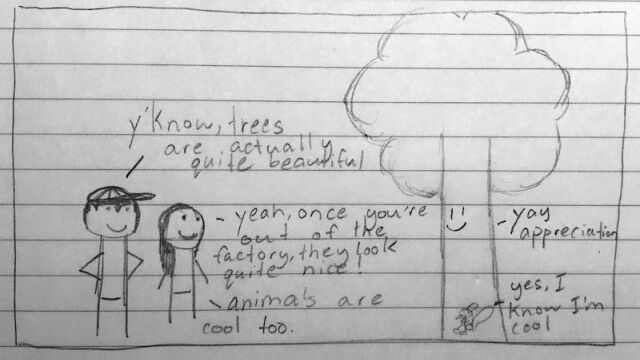 y'know, trees
are actually
quite beautiful
yeah, once you're
out of the
factory, they look
quite nice!
animals are
cool too.
yay
appreciation
yes, I
know I'm
cool